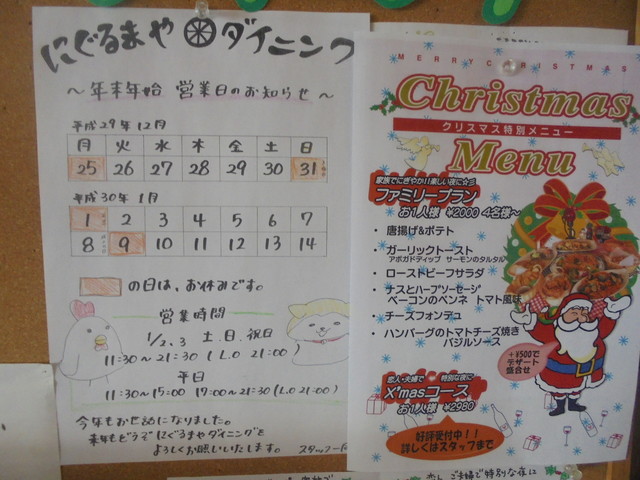 にぐるまやダイニング
～年末年始 営業日のお知らせ～
平成29年12月
月 火 水 木 金 土 日
25 26 27 28 29 30 31
平成30年 1月
1 2 3 4 5 6 7
8 9 10 11 12 13 14
の日は、お休みです。
営業時間
1/2、3 土.日.祝日
11:30～21:30 (L.O 21:00)
平日
11:30～15:00 17:00～21:30 (L.O 21:00)
今年もお世話になりました。
来年もどうぞにぐるまやダイニングを
よろしくお願いいたします。
MERRY CHRISTMAS
Christmas
クリスマス特別メニュー
Menu
家族でにぎやか!!楽しい夜に☆彡
ファミリープラン
お1人様 ¥2000 4名様～
・ 唐揚げ&ポテト
・ ガーリックトースト
アボガドディップ サーモンのタルタル
・ ローストビーフサラダ
・ ナスとハーブソーセージ
ベーコンのペンネ トマト風味
・ チーズフォンデュ
・ ハンバーグのトマトチーズ焼き
バジルソース
+¥500で
デザート
盛合せ
恋人・夫婦で 特別な夜に
X'masコース
お1人様 ¥2980
好評受付中!!
詳しくはスタッフまで